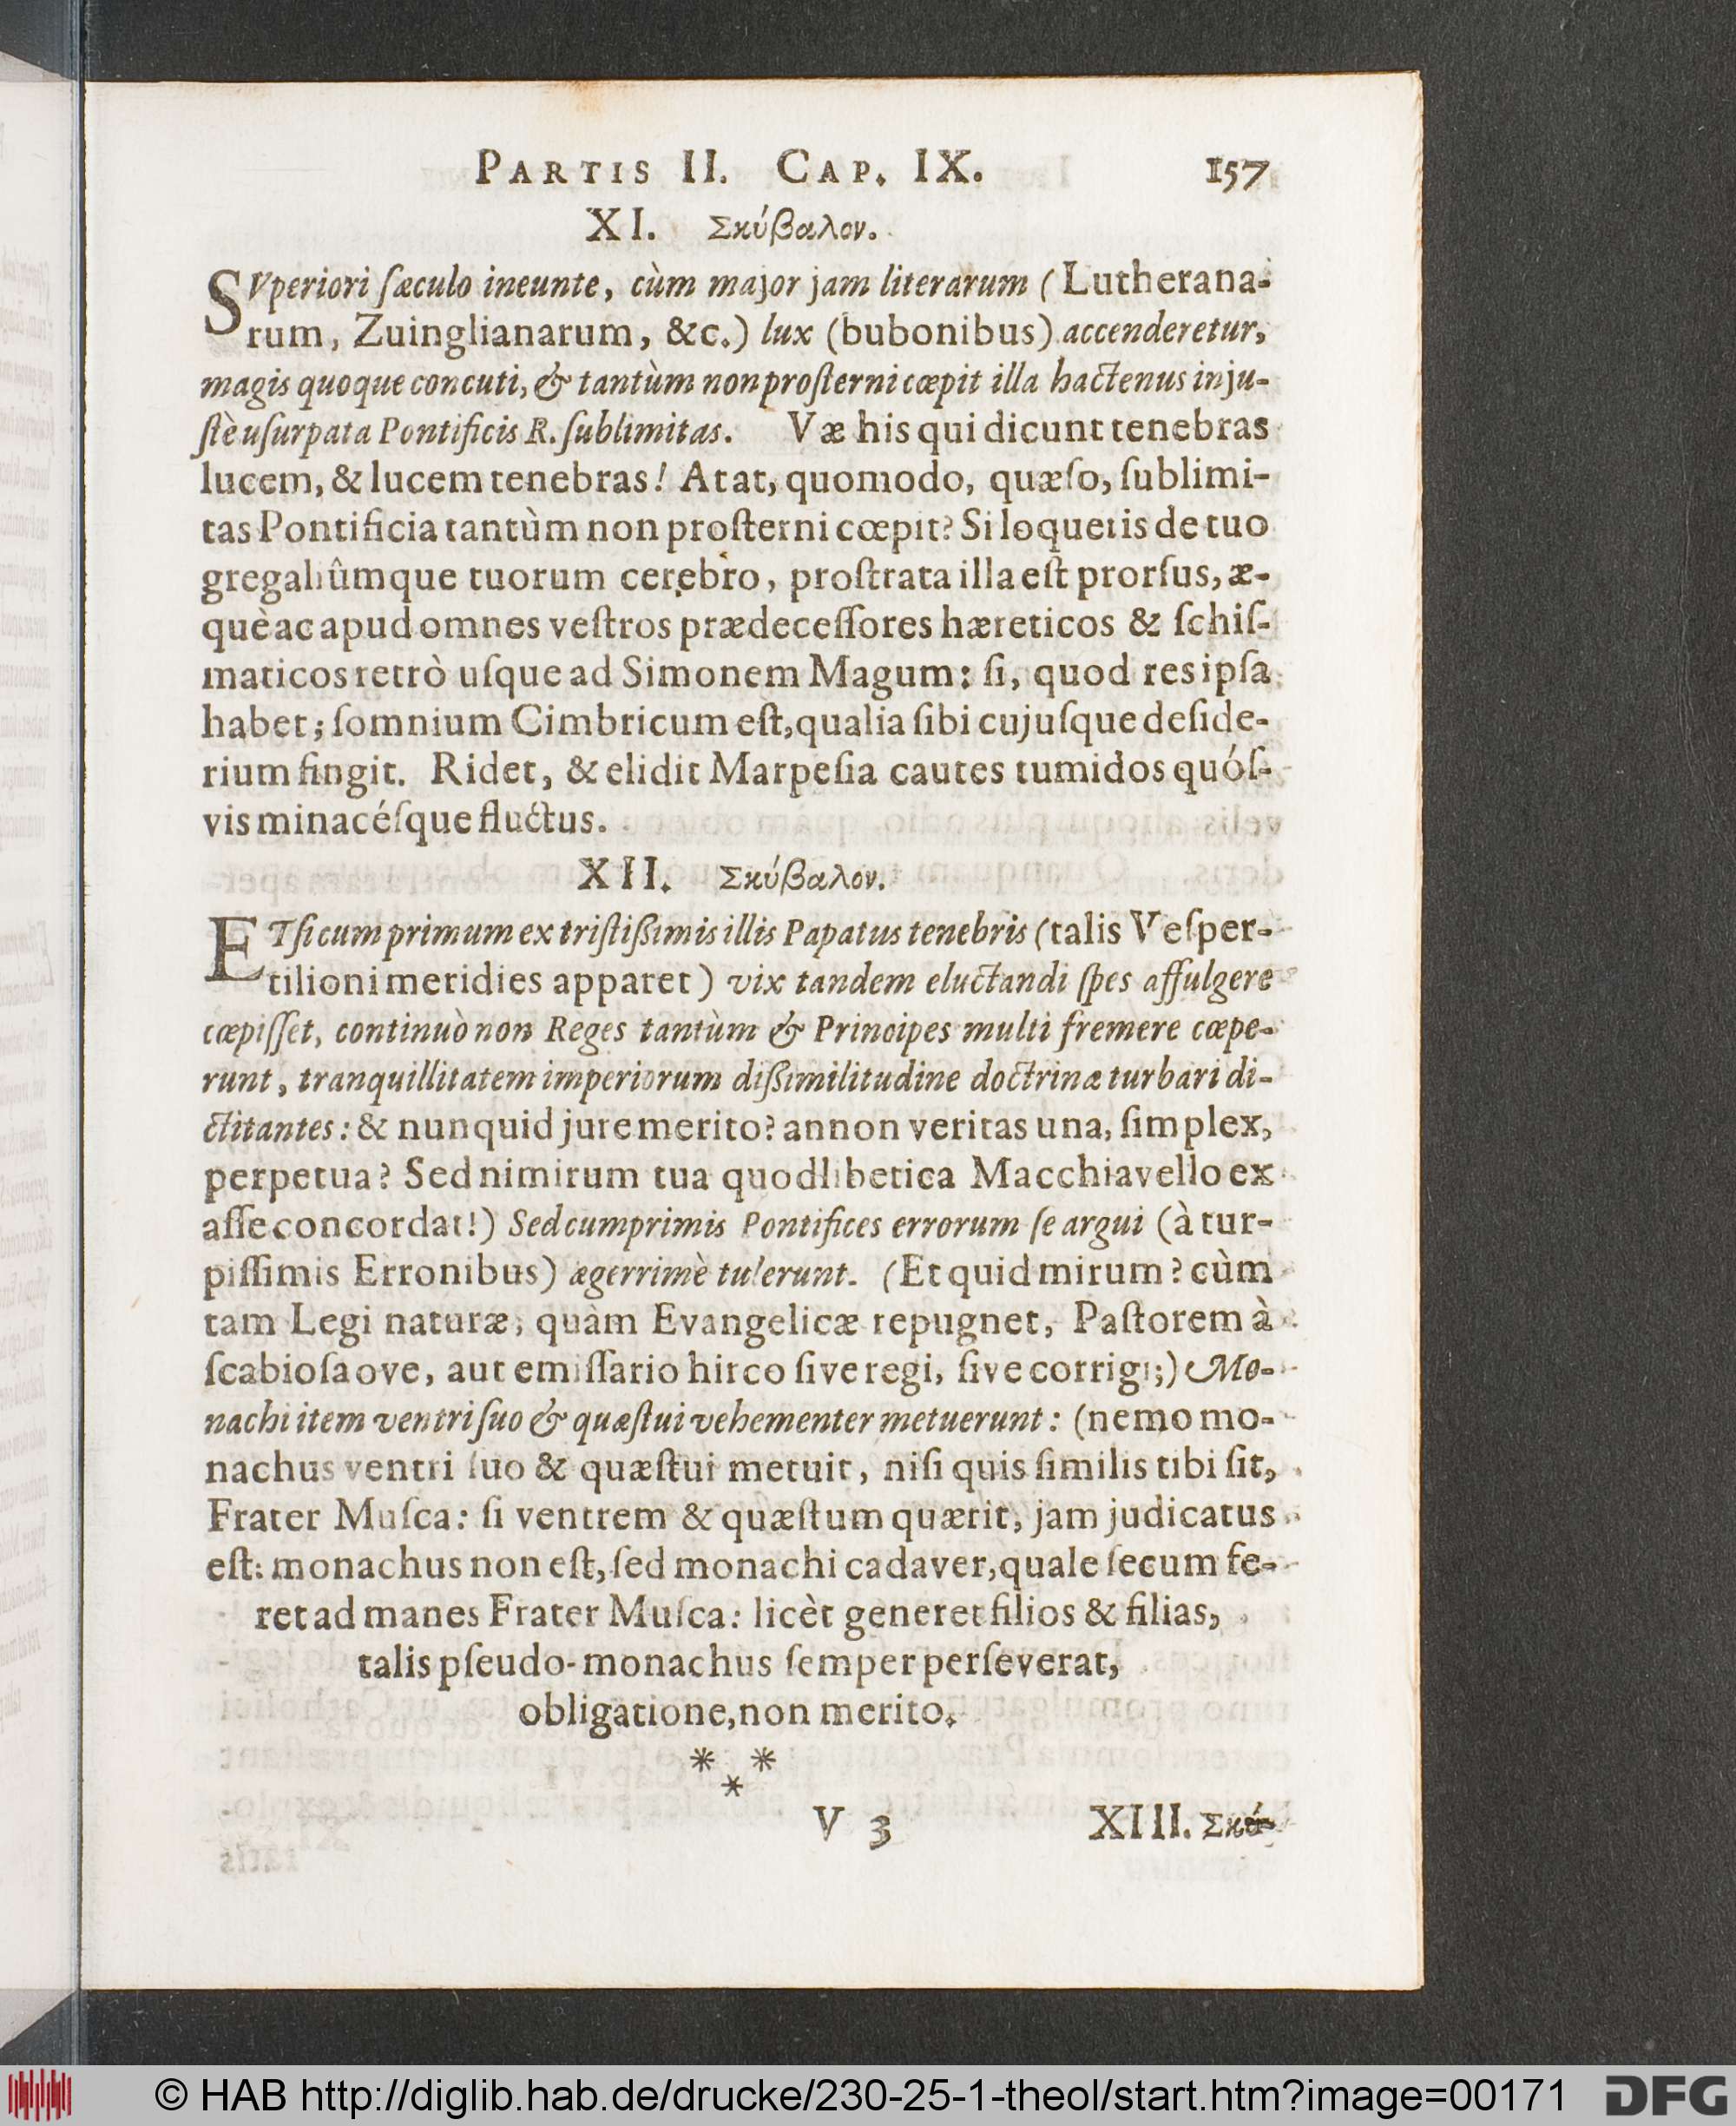 PARTIS II. CAP. IX. 157
XI. Σκύβαλον.
SVperiori ſæculo ineunte, cùm major jam literarum (Lutherana-
rum, Zuinglianarum, &c.) lux (bubonibus) accenderetur,
magis quoque concuti, & tantùm non proſterni cœpit illa hactenus inju-
ſtè uſurpata Pontificis R. ſublimitas. Væ his qui dicunt tenebras
lucem, & lucem tenebras! Atat, quomodo, quæſo, ſublimi-
tas Pontificia tantùm non proſterni cœpit? Si loqueris de tuo
gregaliûmque tuorum cerebro, proſtrata illa eſt prorſus, æ-
què ac apud omnes veſtros prædeceſſores hæreticos & ſchiſ-
maticos retrò uſque ad Simonem Magum: ſi, quod res ipſa
habet; ſomnium Cimbricum eſt, qualia ſibi cujuſque deſide-
rium fingit. Ridet, & elidit Marpeſia cautes tumidos quóſ-
vis minacéſque fluctus.
XII. Σκύβαλον.
ETſi cum primum ex triſtiſſimis illis Papatus tenebris (talis Veſper-
tilioni meridies apparet) vix tandem eluctandi ſpes affulgere
cœpiſſet, continuò non Reges tantùm & Principes multi fremere cœpe-
runt, tranquillitatem imperiorum diſſimilitudine doctrinæ turbari di-
ctitantes: & nunquid jure merito? annon veritas una, ſimplex,
perpetua? Sed nimirum tua quodlibetica Macchiavello ex
aſſe concordat!) Sed cumprimis Pontifices errorum ſe argui (à tur-
piſſimis Erronibus) ægerrimè tulerunt. (Et quid mirum? cùm
tam Legi naturæ, quàm Evangelicæ repugnet, Paſtorem à
ſcabioſa ove, aut emiſſario hirco ſive regi, ſive corrigi;) Mo-
nachi item ventri ſuo & quæſtui vehementer metuerunt: (nemo mo-
nachus ventri ſuo & quæſtui metuit, niſi quis ſimilis tibi ſit,
Frater Muſca: ſi ventrem & quæſtum quærit, jam judicatus
eſt: monachus non eſt, ſed monachi cadaver, quale ſecum fe-
ret ad manes Frater Muſca: licèt generet filios & filias,
talis pſeudo-monachus ſemper perſeverat,
obligatione, non merito.
* *
*
V 3 XIII. Σκύ-
© HAB http://diglib.hab.de/drucke/230-25-1-theol/start.htm?image=00171 DFG